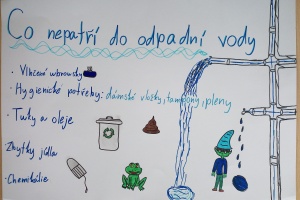 Co nepatří do odpadní vody
• Vlhčené ubrousky
• Hygienické potřeby: dámské vložky, tampony, pleny
• Tuky a oleje
Zbytky jídla
• Chemikálie